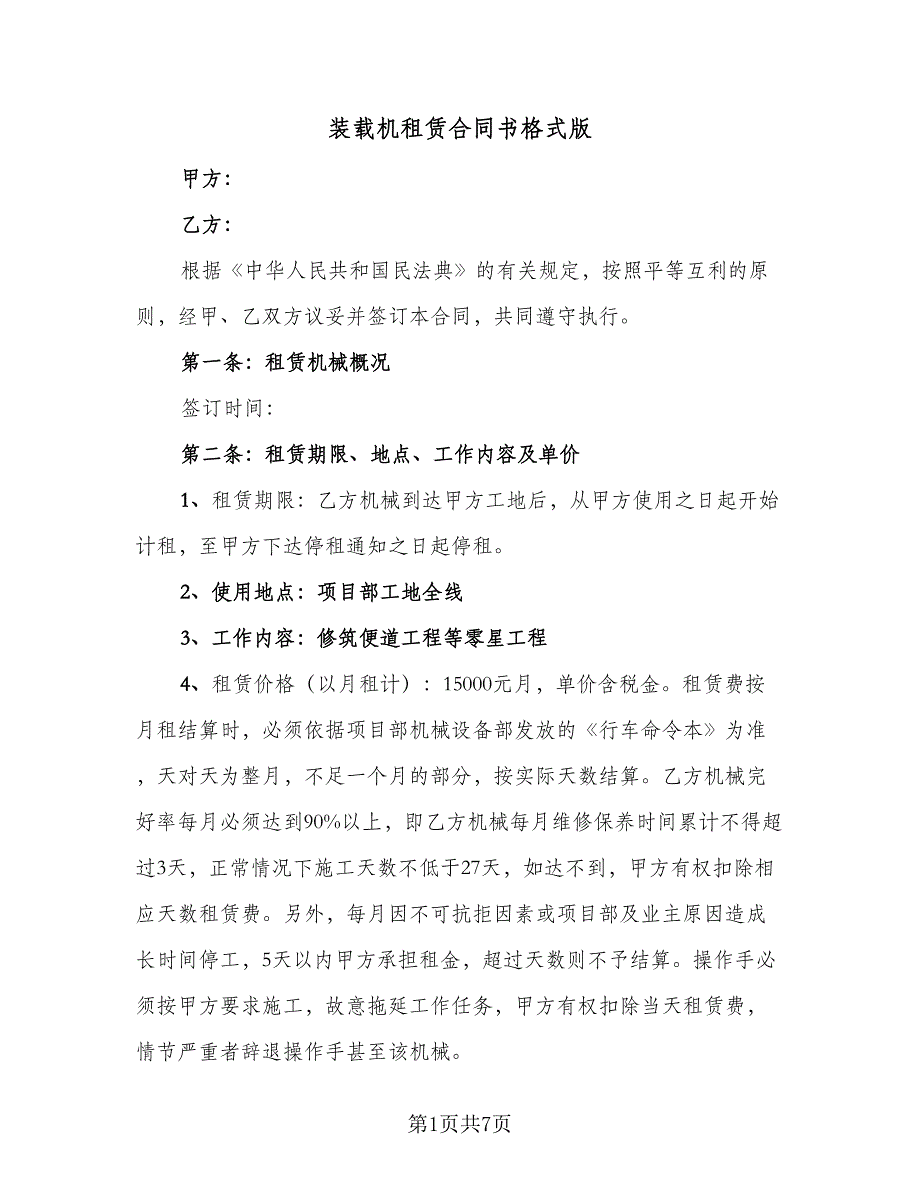 装载机租赁合同书格式版
甲方：
乙方：
根据《中华人民共和国民法典》的有关规定，按照平等互利的原
则，经甲、乙双方议妥并签订本合同，共同遵守执行。
第一条：租赁机械概况
签订时间：
第二条：租赁期限、地点、工作内容及单价
1、租赁期限：乙方机械到达甲方工地后，从甲方使用之日起开始
计租，至甲方下达停租通知之日起停租。
2、使用地点：项目部工地全线
3、工作内容：修筑便道工程等零星工程
4、租赁价格（以月租计）：15000元月，单价含税金。租赁费按
月租结算时，必须依据项目部机械设备部发放的《行车命令本》为准
，天对天为整月，不足一个月的部分，按实际天数结算。乙方机械完
好率每月必须达到90%以上，即乙方机械每月维修保养时间累计不得超
过3天，正常情况下施工天数不低于27天，如达不到，甲方有权扣除相
应天数租赁费。另外，每月因不可抗拒因素或项目部及业主原因造成
长时间停工，5天以内甲方承担租金，超过天数则不予结算。操作手必
须按甲方要求施工，故意拖延工作任务，甲方有权扣除当天租赁费，
情节严重者辞退操作手甚至该机械。
第1页共7页